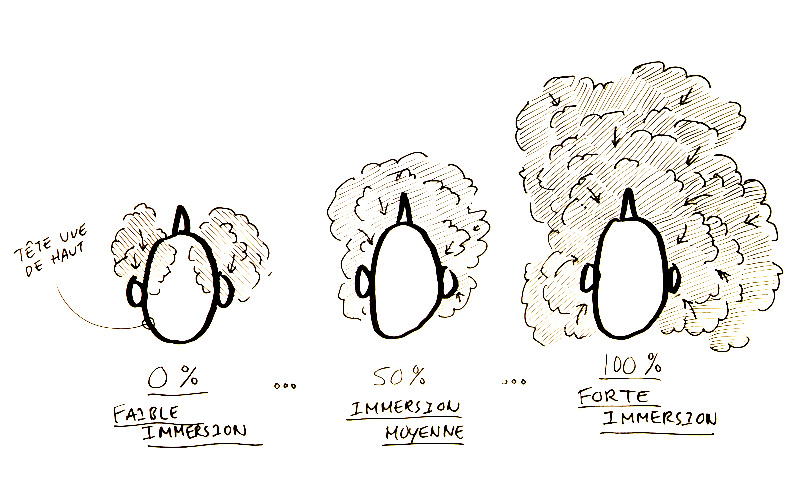 TÊTE VUE
DE HAUT
0 %
...
50 %
...
100 %
FAIBLE
IMMERSION
IMMERSION
MOYENNE
FORTE
IMMERSION